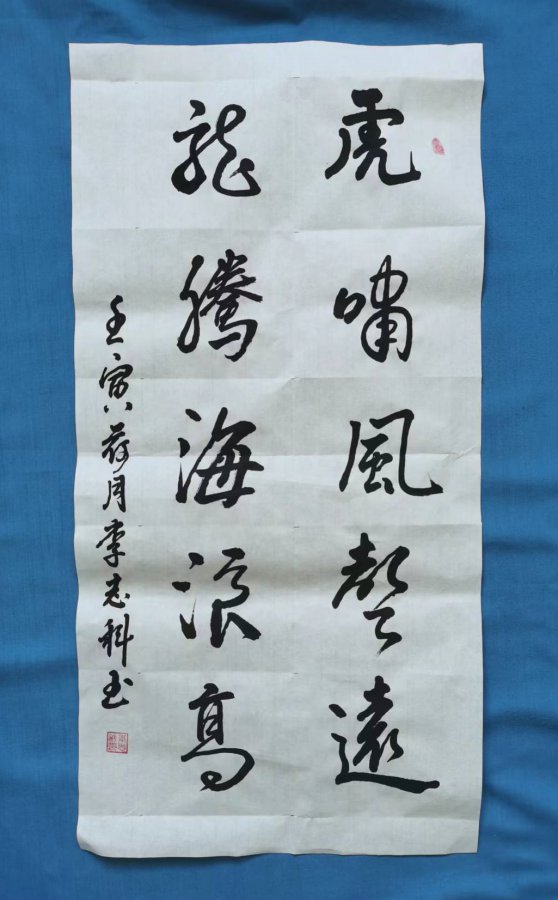 虎嘯風聲遠
龍騰海浪高
壬寅荷月李志科书